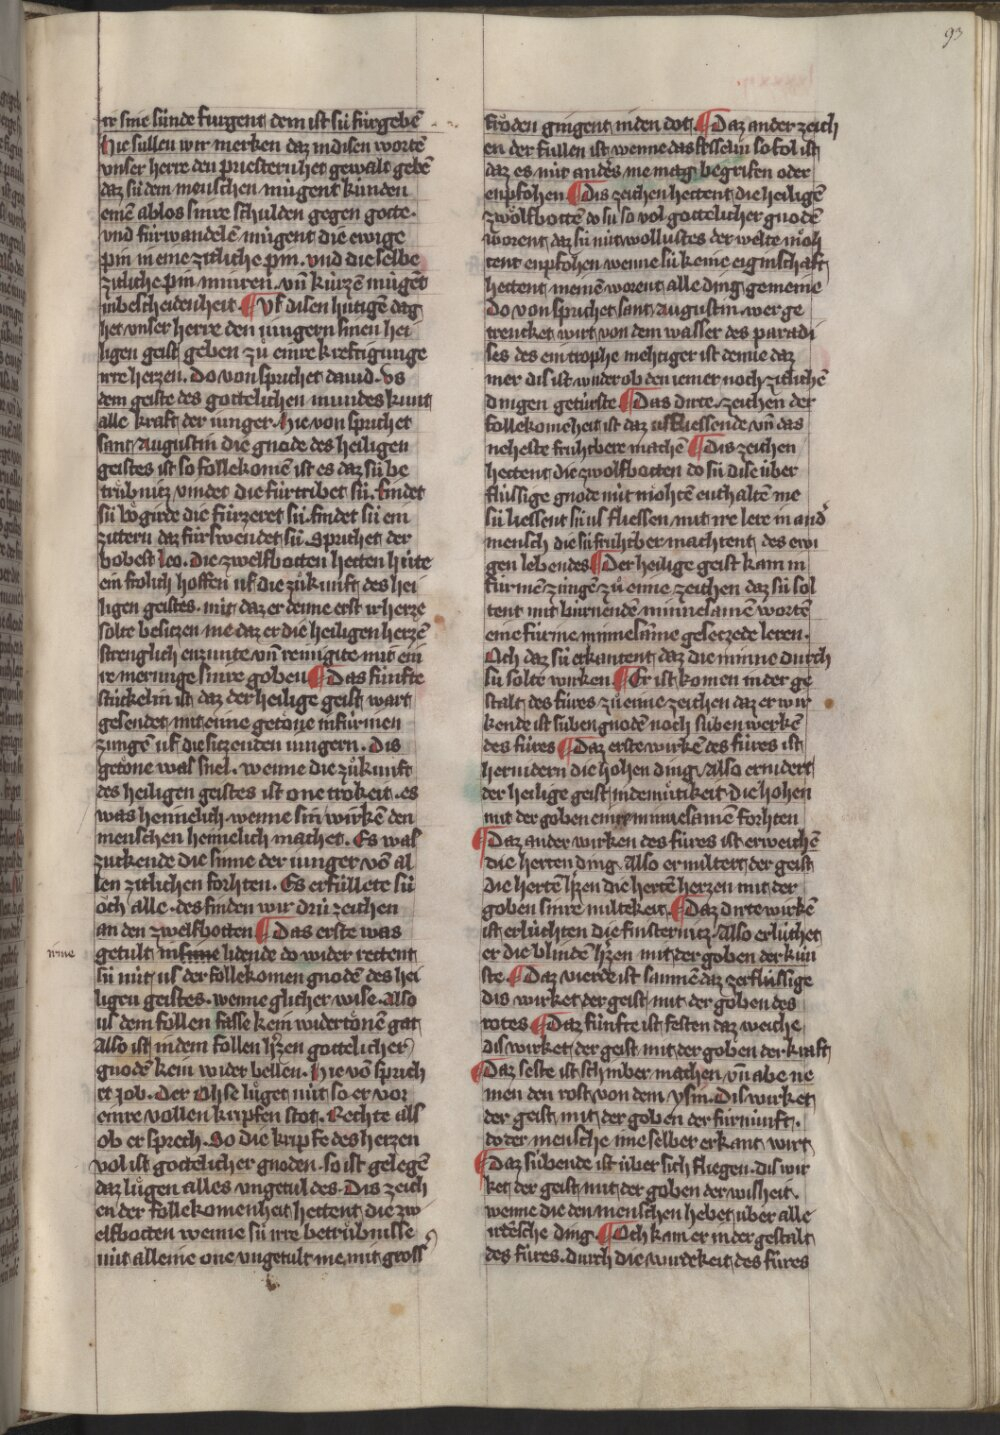 93
lxxxxiij.
ir sine sünde furgent dem ist sü fürgebē
Hie süllen wir merken daz in disen wortē
vnser herre den priestern het gewalt gebē
daz sü dem menschen mügent künden
einē ablos sinre schulden gegen gotte.
vnd fürwandelē mügent die ewige
pin in eine zitliche pin. vnd die selbe
zitliche pin minren. vn̄ kürzē mügēt
in bescheidenheit. ¶ Vf disen hütigen dag
het vnser herre den iungern sinen hei
ligen geist geben zů einre kreftigunge
irre herzen. Do von sprichet dauid. vs
dem geiste des gottelichen mundes kunt
alle kraft der iunger. Hie von sprichet
sant Augustin die gnode des heiligen
geistes ist so follekomē ist es daz sü be
trübnitz vindet die fürtribet sü. findet
sü bögirde die fürzeret sü. findet sü ein
zittern daz fürswendet sü. Sprichet der
bobest Leo. Die zwelfbotten hetten hüte
ein frölich hoffen uf die zůkunft des hei
ligen geistes. nüt daz er denne erst ir herze
solte besitzen me daz er die heiligen herzē
strenglich enzunte vn̄ reinigite mit ein
re merunge sinre goben ¶ Das fünfte
stückelin ist daz der heilige geist wart
gesendet mit eime getöne in fürinen
zungē uf die sitzenden iungern. Dis
getöne was snel. wenne die zůkunft
des heiligen geistes ist one trokeit. es
was heimelich. wenne sin wirkē den
menschen heimelich machet. Es was
zuckende die sinne der iunger vō al
len zitlichen forhten. Es erfüllete sü
och alle. des finden wir drü zeichen
an den zwelfbotten ¶ Das erste was
getult in sinne lidende do wider rettent
sü nüt us der follekomen gnodē des hei
ligen geistes. wenne glicher wise. Also
us dem follen fasse kein widertönē gat
Also ist in dem follen h'zen gottelicher
gnodē kein wider bellen. Hie vō sprich
et Job. Der Ohse lůget nüt so er vor
eime vollen kripfen stot. Rechte als
ob er sprech. So die kripfe des herzen
vol ist gottelicher gnoden. so ist gelegē
daz lůgen alles vngetuldes. Dis zeich
en der follekomenheit hettent die zw
elfbotten wenne sü irre betrübnisse
nüt alleine one vngetult me mit gross
fröden gingent in den dot. ¶ Daz ander zeich
en der füllen ist wenne das fesselin so fol ist
daz es nüt anders me mag begrifen oder
enpfohen ¶ Dis zeichen hettent die heiligē
zwölfbottē do sü so vol gottelicher gnodē
worent daz sü nüt wollustes der welte möh
tent enpfohen wenne sü keine eiginschaft
hettent in einē worent alle ding gemeine
Do von sprichet sant Augustin wer ge
trencket wirt von dem wasser des paradi
ses des ein trophe mehtiger ist denne daz
mer dis ist wider ob den iemer noch zitlichē
dingen getürste ¶ Das dirte zeichen der
follekomeheit ist daz usfliessende vn̄ das
neheste fruhtbere machē ¶ Dis zeichen
hettent die zwolfbotten do sü dise über
flüssige gnode nüt möhtē enthaltē me
sü liessent sü us fliessen mit irre lere in and'
mensch die sü fruhtber machtent des ewi
gen lebendes ¶ Der heilige geist kam in
fürinē züngē zů eime zeichen daz sü sol
tent mit bürnendē minnesamē wortē
eine fürine minnesāme gesetzede leren.
Och daz sü erkantent daz die minne durch
sü solte wirken. ¶ Er ist komen in der ge
stalt des füres zů eime zeichen daz er wir
kende ist süben gnodē noch süben werkē
des füres ¶ Daz erste wirkē des füres ist
hernidern die hohen ding Also ernidert
der heilige geist in demůtikeit. Die hohen
mit der goben einre minnesamē forhten
¶ Daz ander wirken des füres ist erweichē
die herten ding. Also er miltert der geist
die hertē h'zen die hertē herzen mit der
goben sinre miltekeit. ¶ Daz dirte wirkē
ist erlüchten die finsternitz Also erlüchtet
er die blindē h'zen mit der goben der kün
ste. ¶ Daz vierde ist samnē daz zerflüssige
dis wirket der geist mit der goben des
rotes ¶ Daz fünfte ist festen daz weiche
dis wirket der geist mit der goben der kraft
¶ Daz seste ist schinber machen vn̄ abe ne
men den rost von dem ysin. Dis wirket
der geist mit der goben der fürnünft.
do der mensche inne selber erkant wirt
¶ Daz sübende ist über sich fliegen. dis wir
ket der geist mit der goben der wisheit.
wenne die den menschen hebet über alle
irdēsche ding. ¶ Och kam er in der gestalt
des füres. durch die wirdekeit des füres